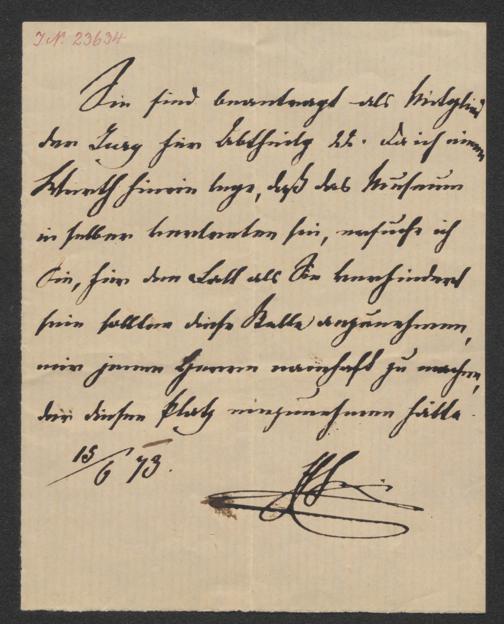 I.N. 23634
Sie sind beantragt als Mitglied
der Jury für Abtheilg 22. Da ich einen
Werth hierin lege, daß das Museum
in selber vertreten sei, ersuche ich
Sie, für den Fall als Sie verhindert
sein sollten diese Stelle anzunehmen,
mir jenen Herren namhaft zu machen,
der diesen Platz einzunehmen hätte.
15/6 73.